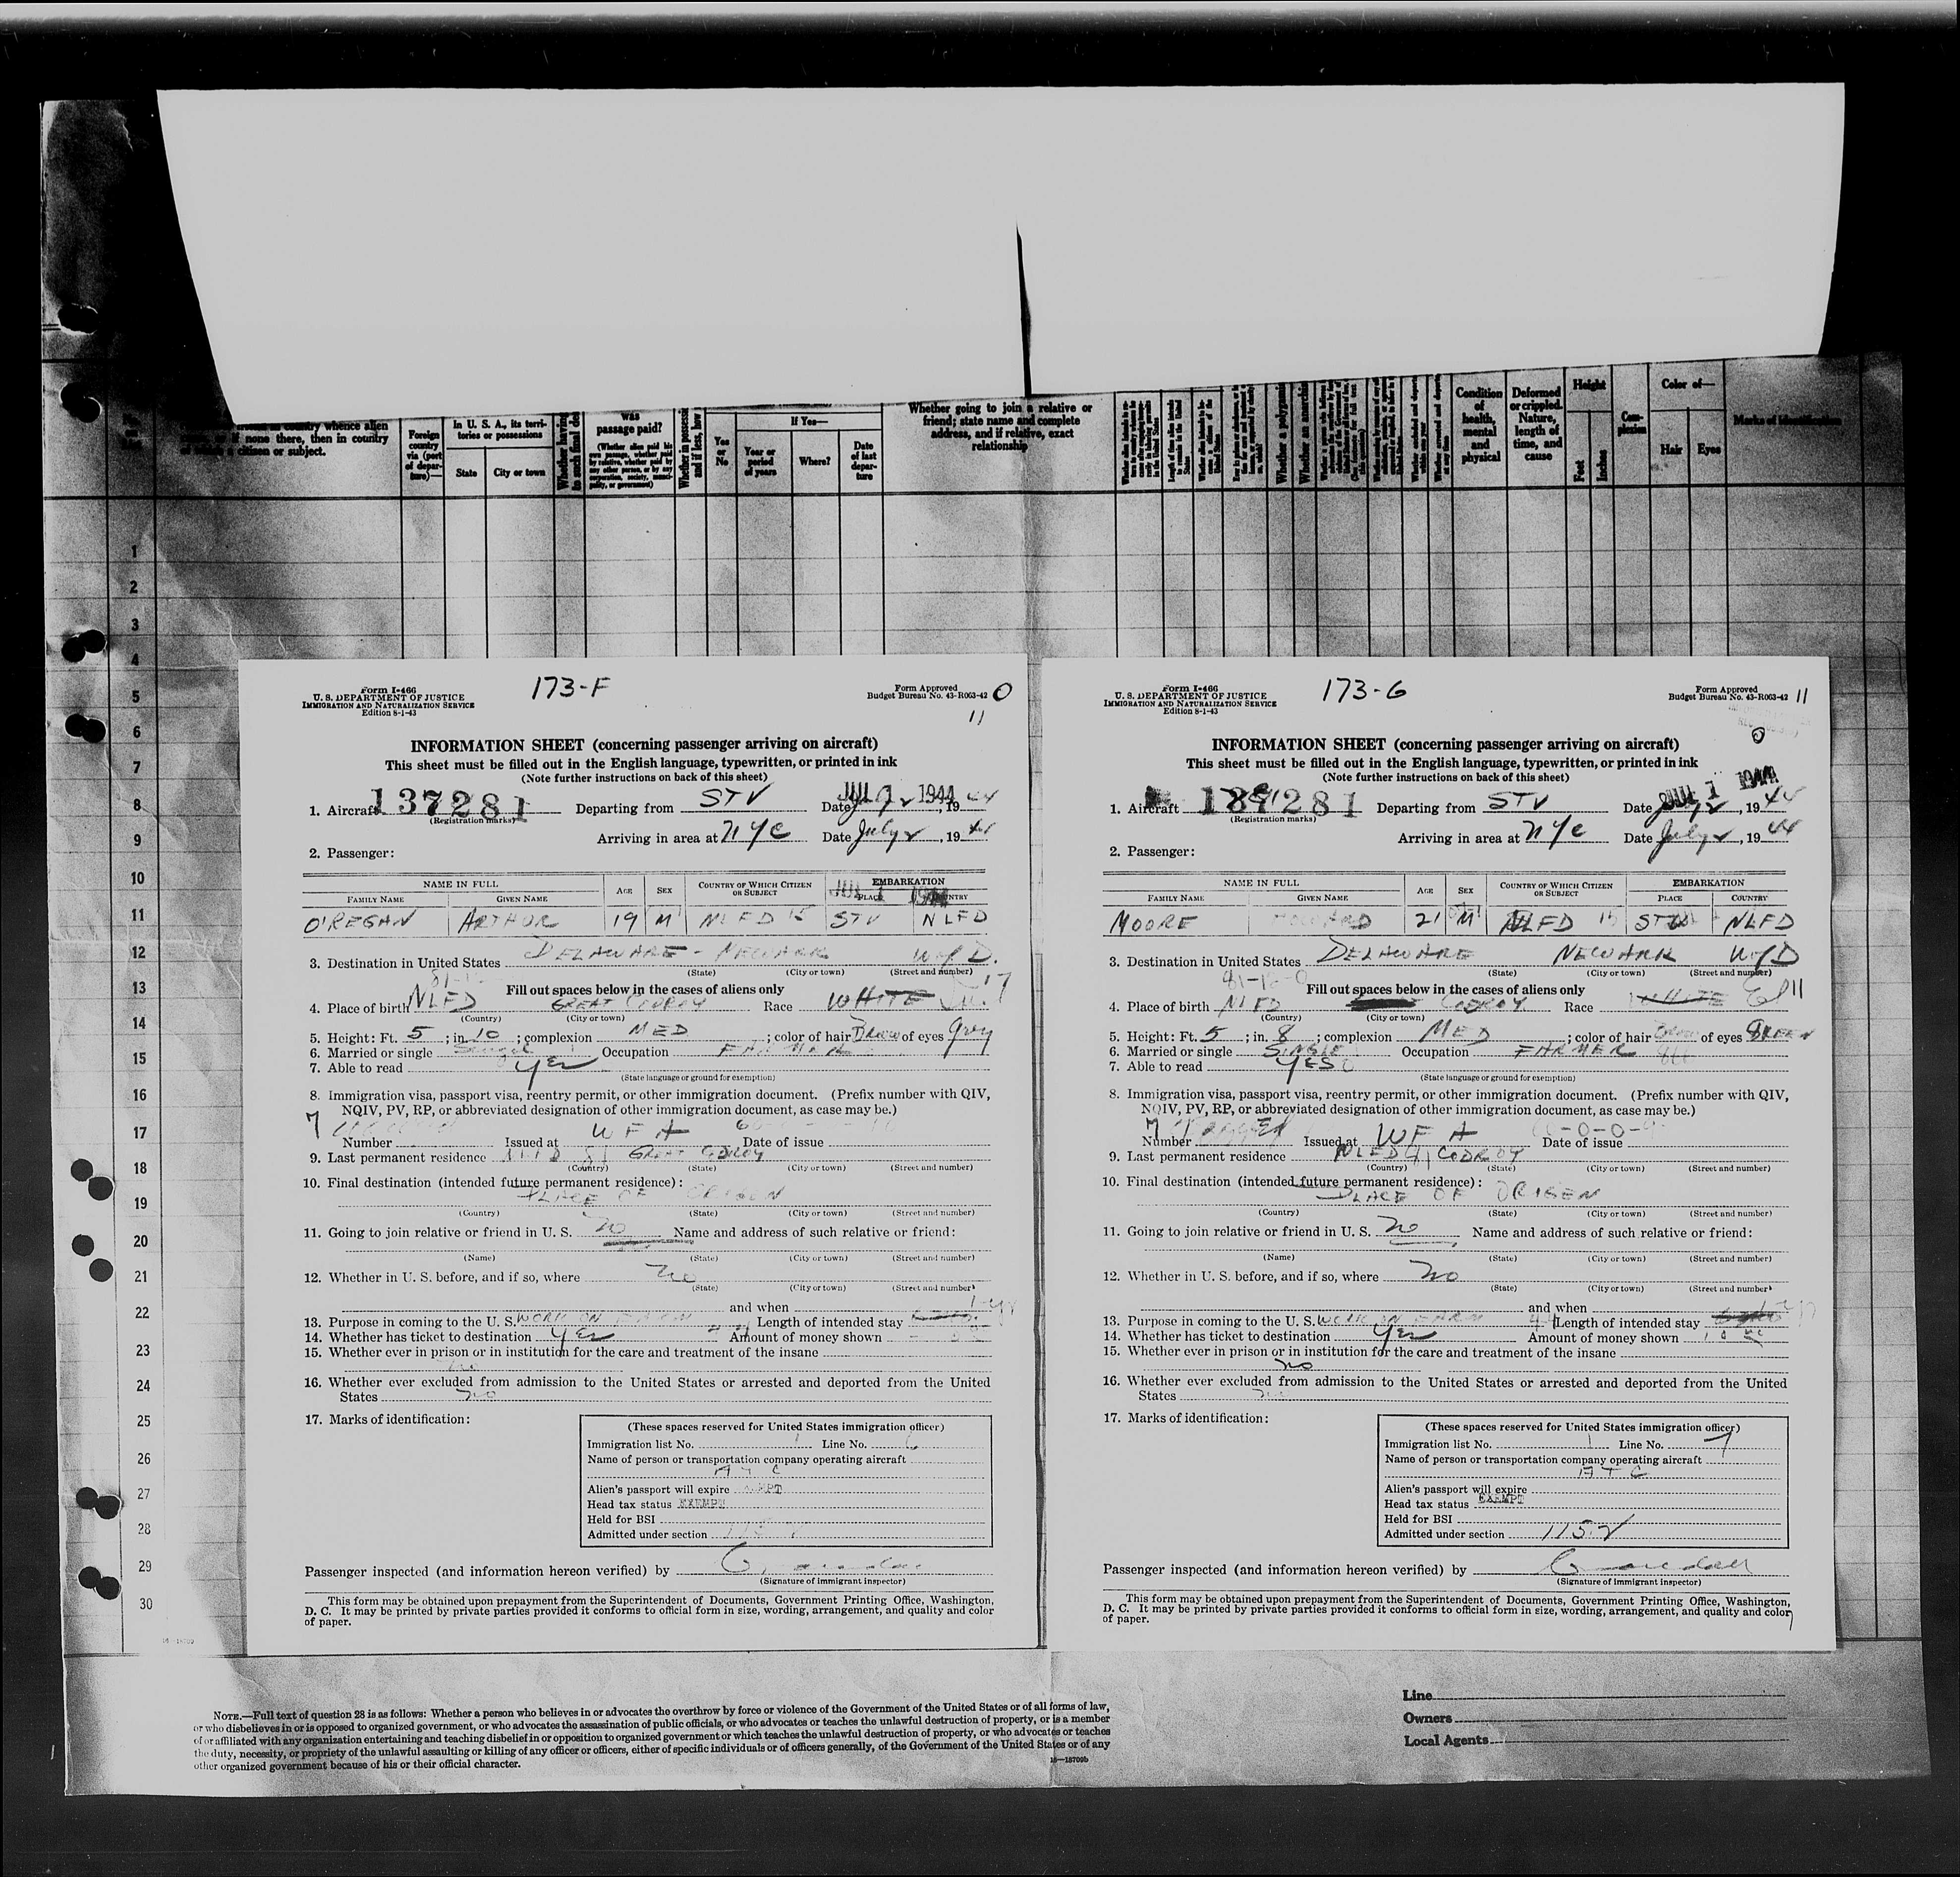 country whence alien
if none there, then in country
a citizen or subject.
Foreign country via (port of departure)—
In U. S. A., its territories or possessions
State
City or town
was passage paid?
(Whether alien paid his own passage, whether paid by relative, whether paid by any other person, or by any corporation, society, municipality, or government)
Yes or No
If Yes—
Year or period of years
Where?
Date of last departure
Whether going to join a relative or friend; state name and complete address, and if relative, exact relationship
Whether a polygamist
Whether an anarchist
Condition of health, mental and physical
Deformed or crippled. Nature, length of time, and cause
Height
Feet
Inches
Complexion
Color of—
Hair
Eyes
Marks of identification
1
2
3
4
5
6
7
8
9
10
11
12
13
14
15
16
17
18
19
20
21
22
23
24
25
26
27
28
29
30
Form I-466
U. S. DEPARTMENT OF JUSTICE
IMMIGRATION AND NATURALIZATION SERVICE
Edition 8-1-43
173-F
Form Approved
Budget Bureau No. 43-R063-42 0
11
INFORMATION SHEET (concerning passenger arriving on aircraft)
This sheet must be filled out in the English language, typewritten, or printed in ink
(Note further instructions on back of this sheet)
1. Aircraft 137281 Departing from STV Date JUL 1 1944, 19 44
(Registration marks)
Arriving in area at NYC Date July 2, 19 44
2. Passenger:
NAME IN FULL AGE SEX COUNTRY OF WHICH CITIZEN OR SUBJECT EMBARKATION
FAMILY NAME GIVEN NAME PLACE COUNTRY
O'REGAN ARTHUR 19 M NLFD 15 STV NLFD
3. Destination in United States DELAWARE - NEWARK
(State) (City or town) (Street and number)
Fill out spaces below in the cases of aliens only
4. Place of birth NLFD GREAT CODROY Race WHITE
(Country) (City or town)
5. Height: Ft. 5; in 10; complexion MED; color of hair Brow of eyes Grey
6. Married or single Single Occupation FARMER
7. Able to read Yes
(State language or ground for exemption)
8. Immigration visa, passport visa, reentry permit, or other immigration document. (Prefix number with QIV,
NQIV, PV, RP, or abbreviated designation of other immigration document, as case may be.)
Number Issued at WFA Date of issue
9. Last permanent residence NLFD GREAT CODROY
(Country) (State) (City or town) (Street and number)
10. Final destination (intended future permanent residence):
PLACE OF ORIGEN
(Country) (State) (City or town) (Street and number)
11. Going to join relative or friend in U. S. no Name and address of such relative or friend:
(Name) (State) (City or town) (Street and number)
12. Whether in U. S. before, and if so, where no
(State) (City or town) (Street and number)
and when
13. Purpose in coming to the U. S. WORK ON FARM Length of intended stay 1 yr
14. Whether has ticket to destination Yes Amount of money shown
15. Whether ever in prison or in institution for the care and treatment of the insane
no
16. Whether ever excluded from admission to the United States or arrested and deported from the United
States no
17. Marks of identification:
(These spaces reserved for United States immigration officer)
Immigration list No. 1 Line No. 6
Name of person or transportation company operating aircraft
ATC
Alien's passport will expire
Head tax status EXEMPT
Held for BSI
Admitted under section 115.2
Passenger inspected (and information hereon verified) by
(Signature of immigrant inspector)
This form may be obtained upon prepayment from the Superintendent of Documents, Government Printing Office, Washington,
D. C. It may be printed by private parties provided it conforms to official form in size, wording, arrangement, and quality and color
of paper.
Form I-466
U. S. DEPARTMENT OF JUSTICE
IMMIGRATION AND NATURALIZATION SERVICE
Edition 8-1-43
173-G
Form Approved
Budget Bureau No. 43-R063-42 11
0
INFORMATION SHEET (concerning passenger arriving on aircraft)
This sheet must be filled out in the English language, typewritten, or printed in ink
(Note further instructions on back of this sheet)
1. Aircraft 137281 Departing from STV Date JUL 1 1944, 19 44
(Registration marks)
Arriving in area at NYC Date July 2, 19 44
2. Passenger:
NAME IN FULL AGE SEX COUNTRY OF WHICH CITIZEN OR SUBJECT EMBARKATION
FAMILY NAME GIVEN NAME PLACE COUNTRY
MOORE HOWARD 21 M NLFD 15 STV NLFD
3. Destination in United States DELAWARE NEWARK
(State) (City or town) (Street and number)
81-12-0
Fill out spaces below in the cases of aliens only
4. Place of birth NLFD CODROY Race WHITE
(Country) (City or town)
5. Height: Ft. 5; in. 8; complexion MED; color of hair Brow of eyes GREEN
6. Married or single SINGLE Occupation FARMER
7. Able to read YES
(State language or ground for exemption)
8. Immigration visa, passport visa, reentry permit, or other immigration document. (Prefix number with QIV,
NQIV, PV, RP, or abbreviated designation of other immigration document, as case may be.)
Number Issued at WFA Date of issue
9. Last permanent residence NLFD CODROY
(Country) (State) (City or town) (Street and number)
10. Final destination (intended future permanent residence):
PLACE OF ORIGEN
(Country) (State) (City or town) (Street and number)
11. Going to join relative or friend in U. S. no Name and address of such relative or friend:
(Name) (State) (City or town) (Street and number)
12. Whether in U. S. before, and if so, where no
(State) (City or town) (Street and number)
and when
13. Purpose in coming to the U. S. WORK ON FARM Length of intended stay 1 yr
14. Whether has ticket to destination Yes Amount of money shown
15. Whether ever in prison or in institution for the care and treatment of the insane
no
16. Whether ever excluded from admission to the United States or arrested and deported from the United
States no
17. Marks of identification:
(These spaces reserved for United States immigration officer)
Immigration list No. 1 Line No. 7
Name of person or transportation company operating aircraft
ATC
Alien's passport will expire
Head tax status EXEMPT
Held for BSI
Admitted under section 115.2
Passenger inspected (and information hereon verified) by
(Signature of immigrant inspector)
This form may be obtained upon prepayment from the Superintendent of Documents, Government Printing Office, Washington,
D. C. It may be printed by private parties provided it conforms to official form in size, wording, arrangement, and quality and color
of paper.
NOTE.—Full text of question 28 is as follows: Whether a person who believes in or advocates the overthrow by force or violence of the Government of the United States or of all forms of law,
or who disbelieves in or is opposed to organized government, or who advocates the assassination of public officials, or who advocates or teaches the unlawful destruction of property, or is a member
of or affiliated with any organization entertaining and teaching disbelief in or opposition to organized government or which teaches the unlawful destruction of property, or who advocates or teaches
the duty, necessity, or propriety of the unlawful assaulting or killing of any officer or officers, either of specific individuals or of officers generally, of the Government of the United States or of any
other organized government because of his or their official character.
16—18709b
Line
Owners
Local Agents